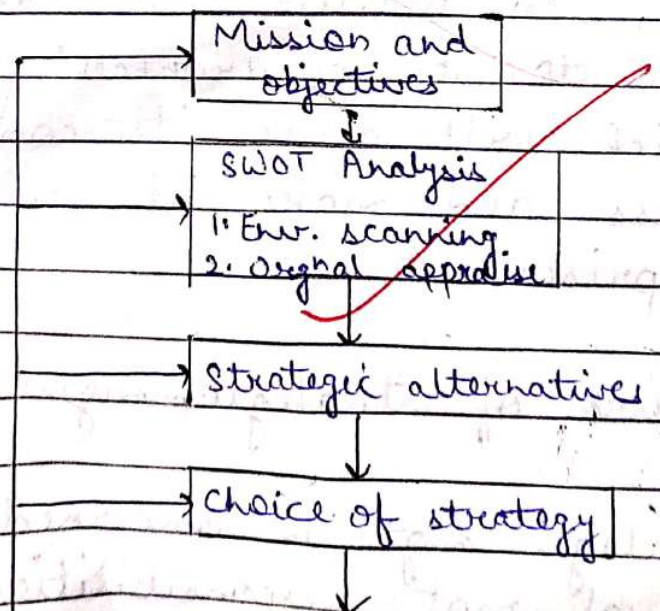 Mission and
objectives
SWOT Analysis
1. Env. scanning
2. Orgnal appraise
Strategic alternatives
choice of strategy